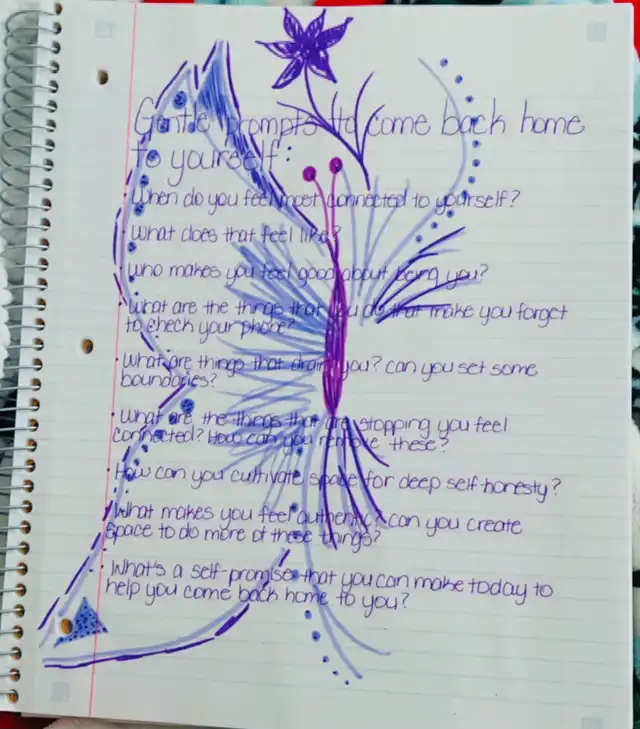 Gentle prompts to come back home
to yourself:
· When do you feel most connected to yourself?
· What does that feel like?
· Who makes you feel good about being you?
· What are the things that you do that make you forget
to check your phone?
· What are things that drain you? can you set some
boundaries?
· What are the things that are stopping you feel
connected? How can you remove these?
· How can you cultivate space for deep self-honesty?
· What makes you feel authentic? can you create
space to do more of these things?
· What's a self-promise that you can make today to
help you come back home to you?